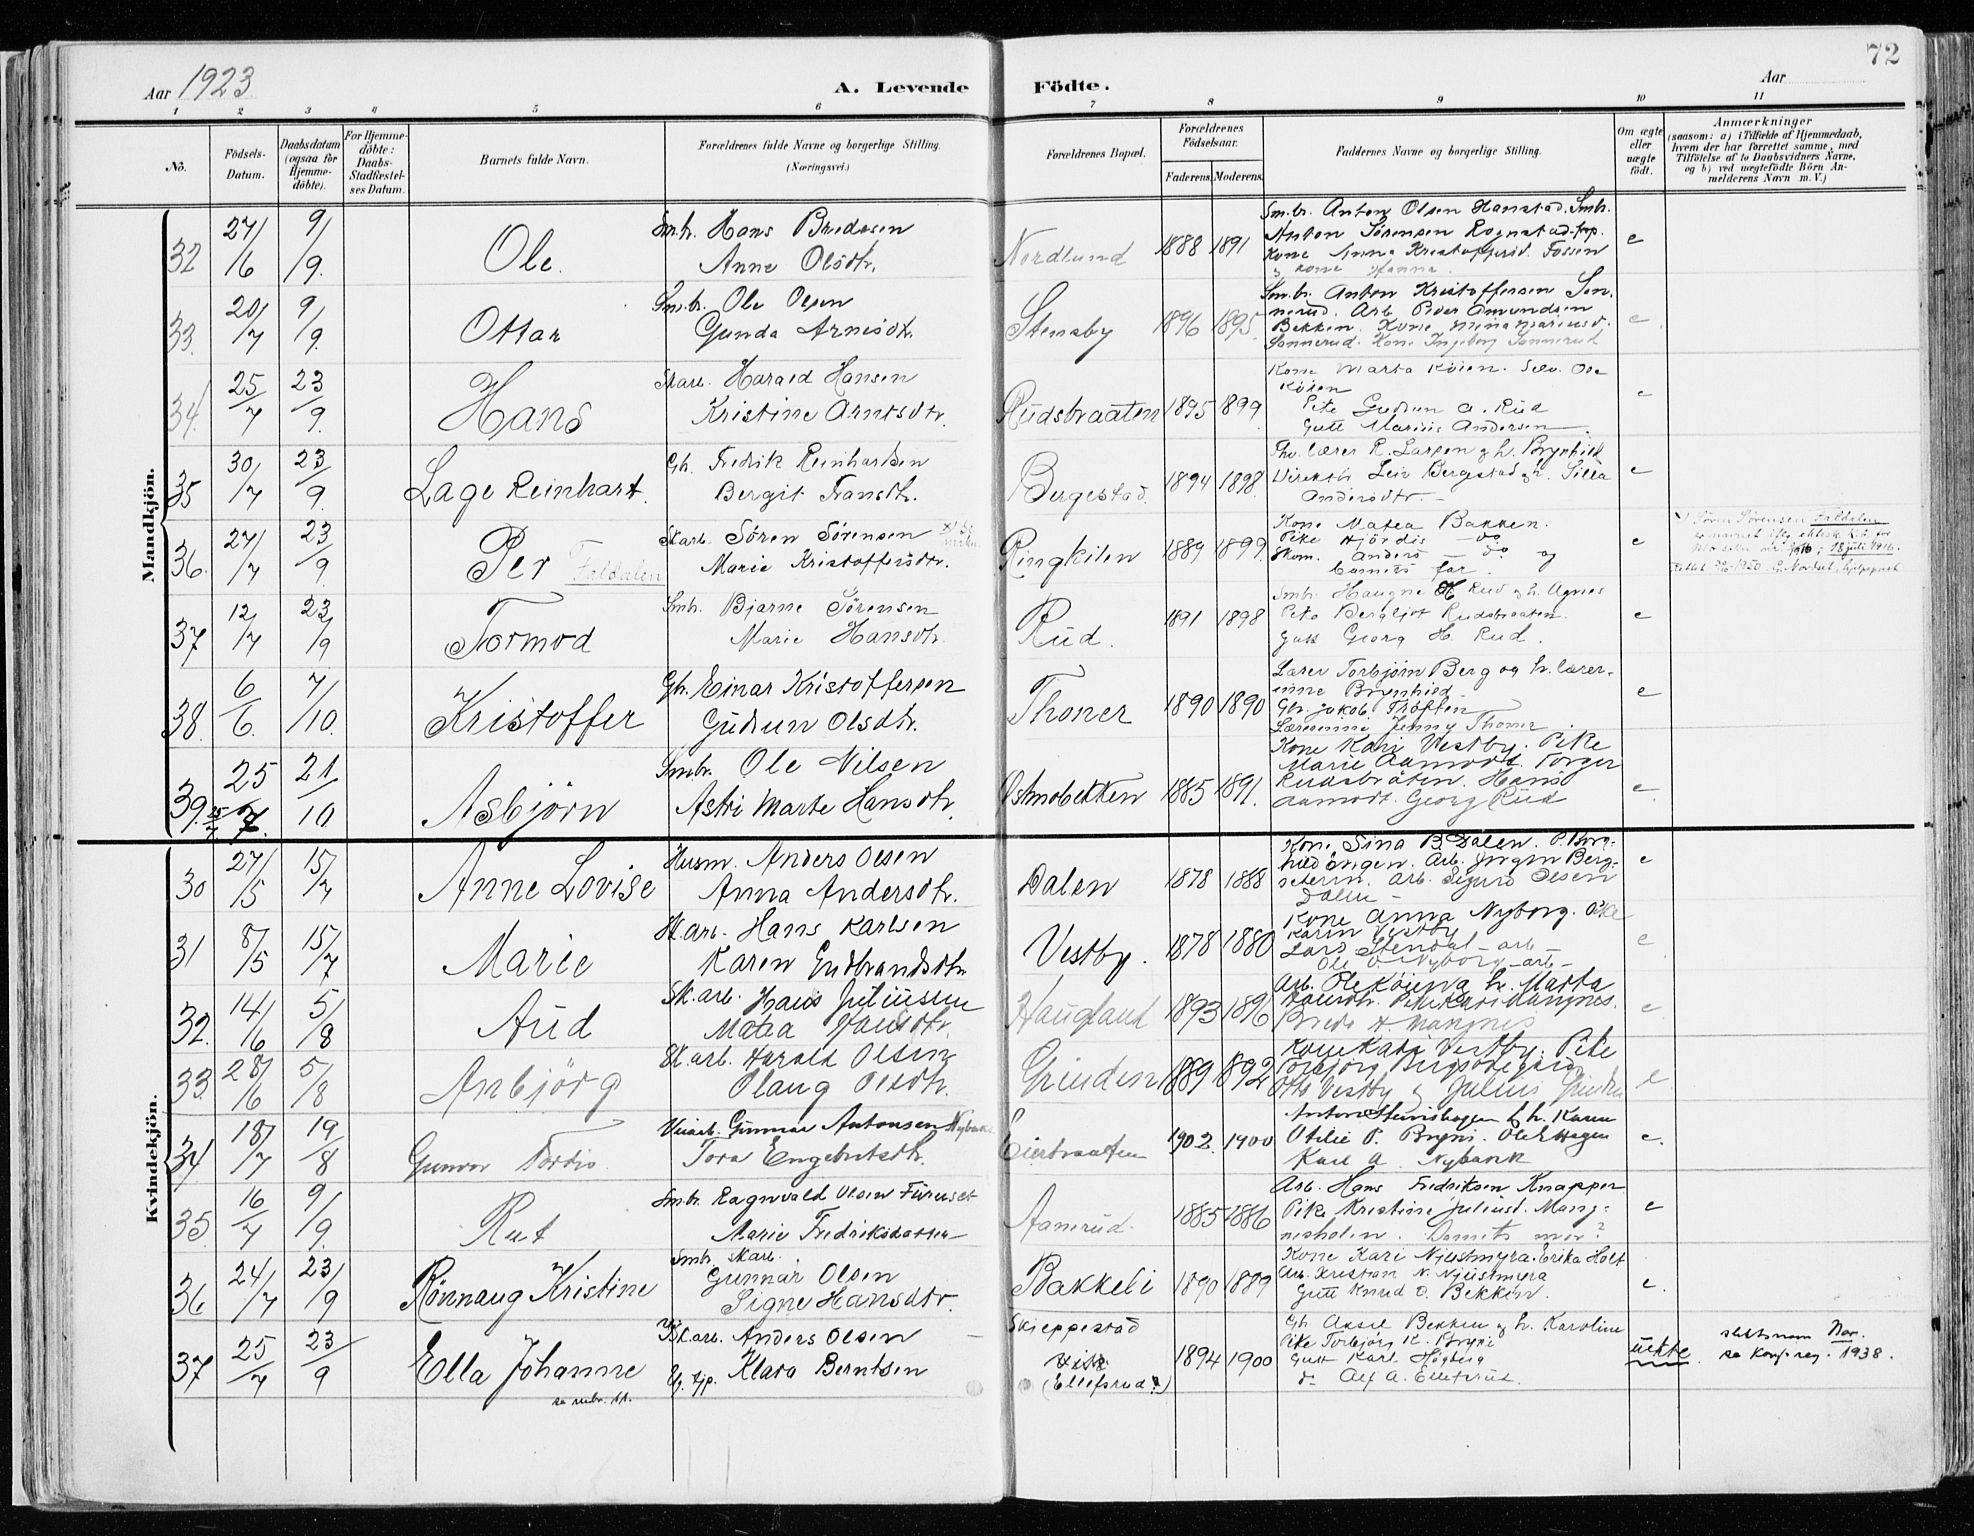 72
Aar 1923
A. Levende Födte.
Aar
1 2 3 4 5 6 7 8 9 10 11
Nö.
Födsels-Datum.
Daabsdatum (ogsaa for Hjemme-döbte).
For Hjemme-döbte: Daabs-Stadfæstel-ses Datum.
Barnets fulde Navn.
Forældrenes fulde Navne og borgerlige Stilling. (Næringsvei.)
Forældrenes Bopæl.
Forældrenes Födselsaar.
Faderens. Moderens.
Faddernes Navne og borgerlige Stilling.
Om ægte eller uægte födt.
Anmærkninger
(saasom: a) i Tilfælde af Hjemmedaab, hvem der har forrettet samme, med Tilföielse af to Daabsvidners Navne, og b) ved uægtefödte Börn An-melderens Navn m. V.)
Mandkjön.
32 27/6 9/9 Ole. Sm.br. Hans Bredesen
Anne Olsdtr. Nordlund 1888 1891 Sm.br. Anton Olsen Hanstad. Smbr.
Anton Sørensen Rognstad
Kone Anna Kristoffersd. Fossen
kone Hanna. e
33. 20/7 9/9. Ottar Sm.br. Ole Olsen
Gunda Arnesdtr. Stensby 1896 1895 Sm.br. Anton Kristoffersen Son-
nerud. Arb. Peder Amundsen
Bakken. Kone
Sonnerud. Kone Ingeborg Sonnerud e
34. 25/7 23/9. Hans Skarb. Harald Hansen
Kristine Arntsdtr. Rudsbraaten 1895 1899 Kone Marta Køien. Selv. Ole
Køien
Pike Gudrun A. Rud
Gutt Marius Andersen e
35 30/7 23/9. Lage Reinhart. Gb. Fredrik Reinhartsen
Bergit Fransdtr. Bergestad 1894 1898 lærer R. Larsen og h. Brynhild
Leiv Bergstad og h. Silla
Andersdtr e
36. 27/7 23/9 Per Faldalen Skarb. Søren Sørensen
Marie Kristoffersdtr. Ringkilen 1889 1899 Kone Matea Bakken.
Pike Hjørdis do
Skom. Anders do og
barnets far. e Søren Sørensen Faldalen
18 juli 1916.
37 12/7 23/9 Tormod Smbr. Bjarne Sørensen
Marie Hansdtr. Rud. 1891 1898 Smbr. Haugne H Rud og h. Agnes
Pike Bergljot Rudsbraaten.
Gutt Georg H. Rud. e
38. 6/6. 7/10. Kristoffer Gb. Einar Kristoffersen
Gudrun Olsdtr. Thoner 1890 1890 Lærer Torbjørn Berg og h. lærer-
inne Brynhild
Gb. Jakob Trøften
Lærerinne Jenny Thoner e
39. 25/7. 21/10 Asbjörn Smbr. Ole Nilsen
Astri Marte Hansdtr. Ostmobekken 1885 1891. Kone Kari Vestby. Pike
Marie Aamodt. Torger
Rudsbråten. Hans
Aamodt. Georg Rud e
Kvindekjön.
30 27/5 15/7 Anne Lovise Husm. Anders Olsen
Anna Andersdtr. Dalen 1878 1888 Kone Sina B Dalen. P. Borg-
hild Engen. Arb. Jörgen Berg-
seterin. Arb. Sigurd Olsen
Dalen e
31 8/5 15/7 Marie Skarb. Hans Karlsen
Karen Gudbrandsdtr. Vestby. 1878 1880 Kone Anna Nyborg. Pike
Karin Vestby
Lars Stendal - arb -
Ole O. Nyborg - arb - e
32. 14/6 5/8 Aud Sk.arb. Hans Juliusen
Matea Hansdtr. Haugland 1893 1896 Arb. Ole Køien og h. Marta
Hansdtr. Pike Kari Mangnes.
Brede H. Mangnes e
33. 28/6 5/8 Anbjörg Sk.arb. Harald Olsen
Olaug Olsdtr. Grinden 1889 1892 Kone Kari Vestby. Pike
Torbjørg
Otto Vestby og Julius Grinden e
34 18/7 19/8 Gunvor Tordis. Gunnar Antonsen Nybakk
Tora Engebretsdtr. Eierbraaten 1902 1900 Anton Stenshagen og h. Karen
Otilie P. Bryni. Ole E Hagen
Karl A. Nybakk e.
35. 16/7 9/9. Rut Smbr. Ragnvald Olsen Furuset
Marie Fredriksdatter Aamrud. 1885 1886 Arb. Hans Fredriksen Knapper
Pike Kristine Juliusd. Mang-
nesholen. Barnets mor? e
36 24/7 23/9 Rönnaug Kristine Smbr. Skarb.
Gunnar Olsen
Signe Hansdtr. Bakkeli 1890 1889 Kone Kari Njustmyra. Erika Holt
Arb. Kristian N. Njustmyra
Gutt Knud O. Bekken. e.
37 25/7 23/9 Ella Johanne Skarb. Anders Olsen
Klara Berntsen Skjeppestad
(Ellefsrud?) 1894 1900 Gb. Aksel Bekken og h. Karoline
Pike Torbjörg K. Bryni
Gutt Karl Högberg
do Alf A. Ellefsrud. uekte slektsnavn Nor.
se Konf.reg. 1938.